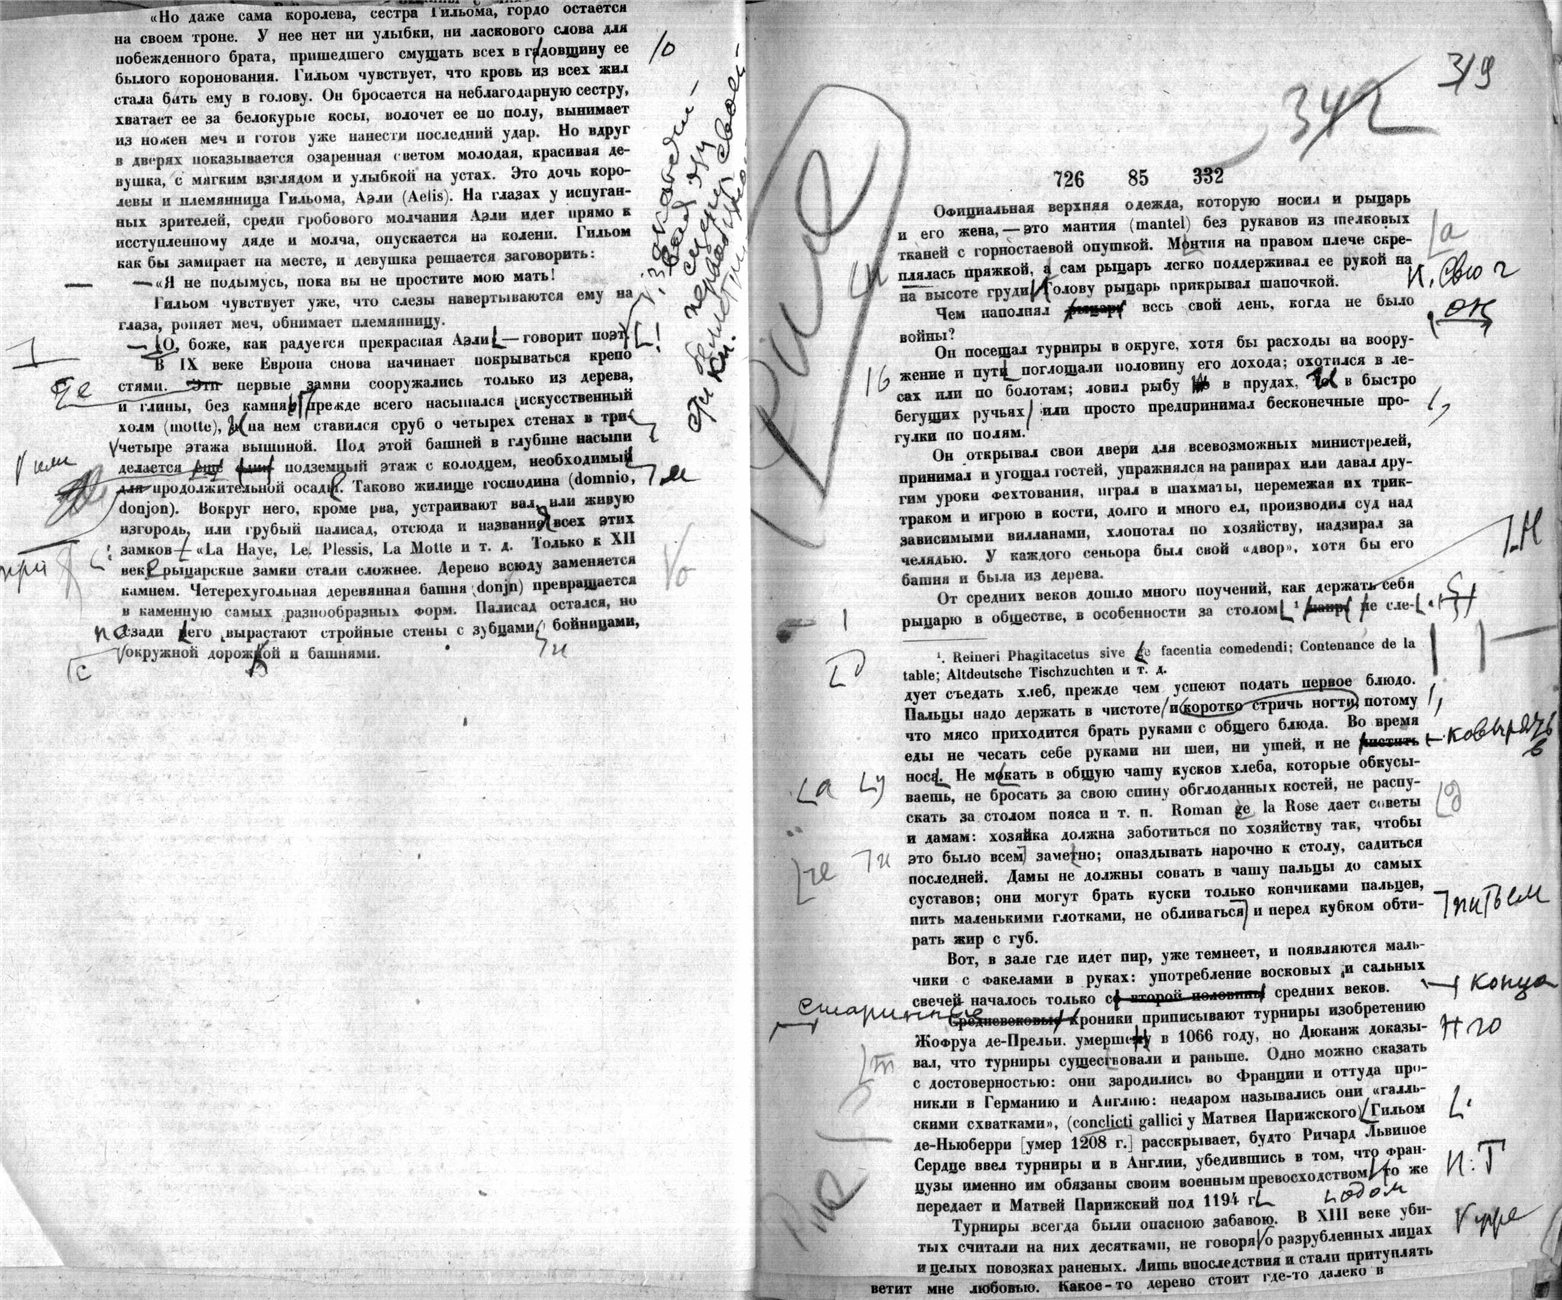 «Но даже сама королева, сестра Гильома, гордо остается
на своем троне. У нее нет ни улыбки, ни ласкового слова для
побежденного брата, пришедшего смущать всех в гадовщину ее
былого коронования. Гильом чувствует, что кровь из всех жил
стала бить ему в голову. Он бросается на неблагодарную сестру,
хватает ее за белокурые косы, волочет ее по полу, вынимает
из ножен меч и готов уже нанести последний удар. Но вдруг
в дверях показывается озаренная светом молодая, красивая де-
вушка, с мягким взглядом и улыбкой на устах. Это дочь коро-
левы и племянница Гильома, Аэли (Aelis). На глазах у испуган-
ных зрителей, среди гробового молчания Аэли идет прямо к
исступленному дяде и молча, опускается на колени. Гильом
как бы замирает на месте, и девушка решается заговорить:
—«Я не подымусь, пока вы не простите мою мать!
Гильом чувствует уже, что слезы навертываются ему на
глаза, роняет меч, обнимает племянницу.
—О, боже, как радуется прекрасная Аэли — говорит поэт.
В IX веке Европа снова начинает покрываться крепо
стями. Эти первые замки сооружались только из дерева,
и глины, без камня прежде всего насыпался искусственный
холм (motte), на нем ставился сруб о четырех стенах в три-
четыре этажа вышиной. Под этой башней в глубине насыпи
делается еще один подземный этаж с колодцем, необходимый
для продолжительной осады. Таково жилище господина (domnio,
donjon). Вокруг него, кроме рва, устраивают вал, или живую
изгородь, или грубый палисад, отсюда и название всех этих
замков «La Haye, Le. Plessis, La Motte и т. д. Только к XII
веке рыцарские замки стали сложнее. Дерево всюду заменяется
камнем. Четерехугольная деревянная башня (donjn) превращается
в каменную самых разнообразных форм. Палисад остался, но
сзади него вырастают стройные стены с зубцами, бойницами,
окружной дорожкой и башнями.
319
342
726 85 332
Официальная верхняя одежда, которую носил и рыцарь
и его жена,—это мантия (mantel) без рукавов из шелковых
тканей с горностаевой опушкой. Монтия на правом плече скре-
плялась пряжкой, а сам рыцарь легко поддерживал ее рукой на
на высоте груди. Голову рыцарь прикрывал шапочкой.
Чем наполнял рыцарь весь свой день, когда не было
он
войны?
Он посещал турниры в округе, хотя бы расходы на воору-
жение и пути поглощали половину его дохода; охотился в ле-
сах или по болотам; ловил рыбу в прудах, в быстро
бегущих ручьях или просто предпринимал бесконечные про-
гулки по полям.
Он открывал свои двери для всевозможных министрелей,
принимал и угощал гостей, упражнялся на рапирах или давал дру-
гим уроки фехтования, играл в шахматы, перемежая их трик-
траком и игрою в кости, долго и много ел, производил суд над
зависимыми вилланами, хлопотал по хозяйству, надзирал за
челядью. У каждого сеньора был свой «двор», хотя бы его
башня и была из дерева.
От средних веков дошло много поучений, как держать себя
рыцарю в обществе, в особенности за столом ¹ напр не сле-
¹. Reineri Phagitacetus sive ge facentia comedendi; Contenance de la
table; Altdeutsche Tischzuchten и т. д.
дует съедать хлеб, прежде чем успеют подать первое блюдо.
Пальцы надо держать в чистоте и коротко стричь ногти, потому
что мясо приходится брать руками с общего блюда. Во время
еды не чесать себе руками ни шеи, ни ушей, и не чистить
ковырять в
носа. Не мокать в общую чашу кусков хлеба, которые обкусы-
ваешь, не бросать за свою спину обглоданных костей, не распу-
скать за столом пояса и т. п. Roman ge la Rose дает советы
и дамам: хозяйка должна заботиться по хозяйству так, чтобы
это было всем заметно; опаздывать нарочно к столу, садиться
последней. Дамы не должны совать в чашу пальцы до самых
суставов; они могут брать куски только кончиками пальцев,
пить маленькими глотками, не обливаться и перед кубком обти-
питьем
рать жир с губ.
Вот, в зале где идет пир, уже темнеет, и появляются маль-
чики с факелами в руках: употребление восковых и сальных
свечей началось только с второй половины средних веков.
конца
старинные
Средневековые хроники приписывают турниры изобретению
Жофруа де-Прельи. умершему в 1066 году, но Дюканж доказы-
вал, что турниры существовали и раньше. Одно можно сказать
с достоверностью: они зародились во Франции и оттуда про-
никли в Германию и Англию: недаром назывались они «галль-
скими схватками», (conclicti gallici у Матвея Парижского) Гильом
де-Ньюберри [умер 1208 г.] расскрывает, будто Ричард Львиное
Сердце ввел турниры и в Англии, убедившись в том, что фран-
цузы именно им обязаны своим военным превосходством то же
передает и Матвей Парижский под 1194 г
годом
Турниры всегда были опасною забавою. В XIII веке уби-
тых считали на них десятками, не говоря о разрубленных лицах
и целых повозках раненых. Лишь впоследствия и стали притуплять
ветит мне любовью. Какое-то дерево стоит где-то далеко в